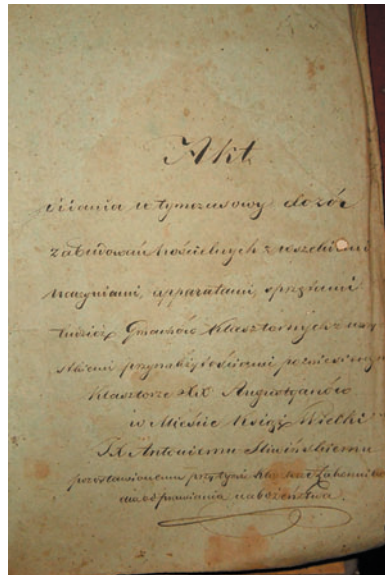 Akt
oddania w tymczasowy dozór
zabudowań kościelnych z wszelkiemi
naczyniami, apparatami, sprzętami
tudzież Gmachów Klasztornych z
przynależytościami po
Klasztorze XX Augustyanów
w Mieście Książ Wielki
JX. Antoniemu Śliwińskiemu
pozostawionemu przy tymże
do odprawiania nabożeństwa.